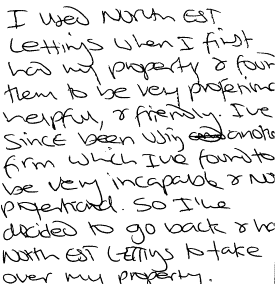 I used North EST
Lettings when I first
had my property & four
them to be very
helpful, & friendly. I've
since been using
firm which I've found to
be very incapable & No
So I've
decided to go back &
North EST Lettings to take
over my property.